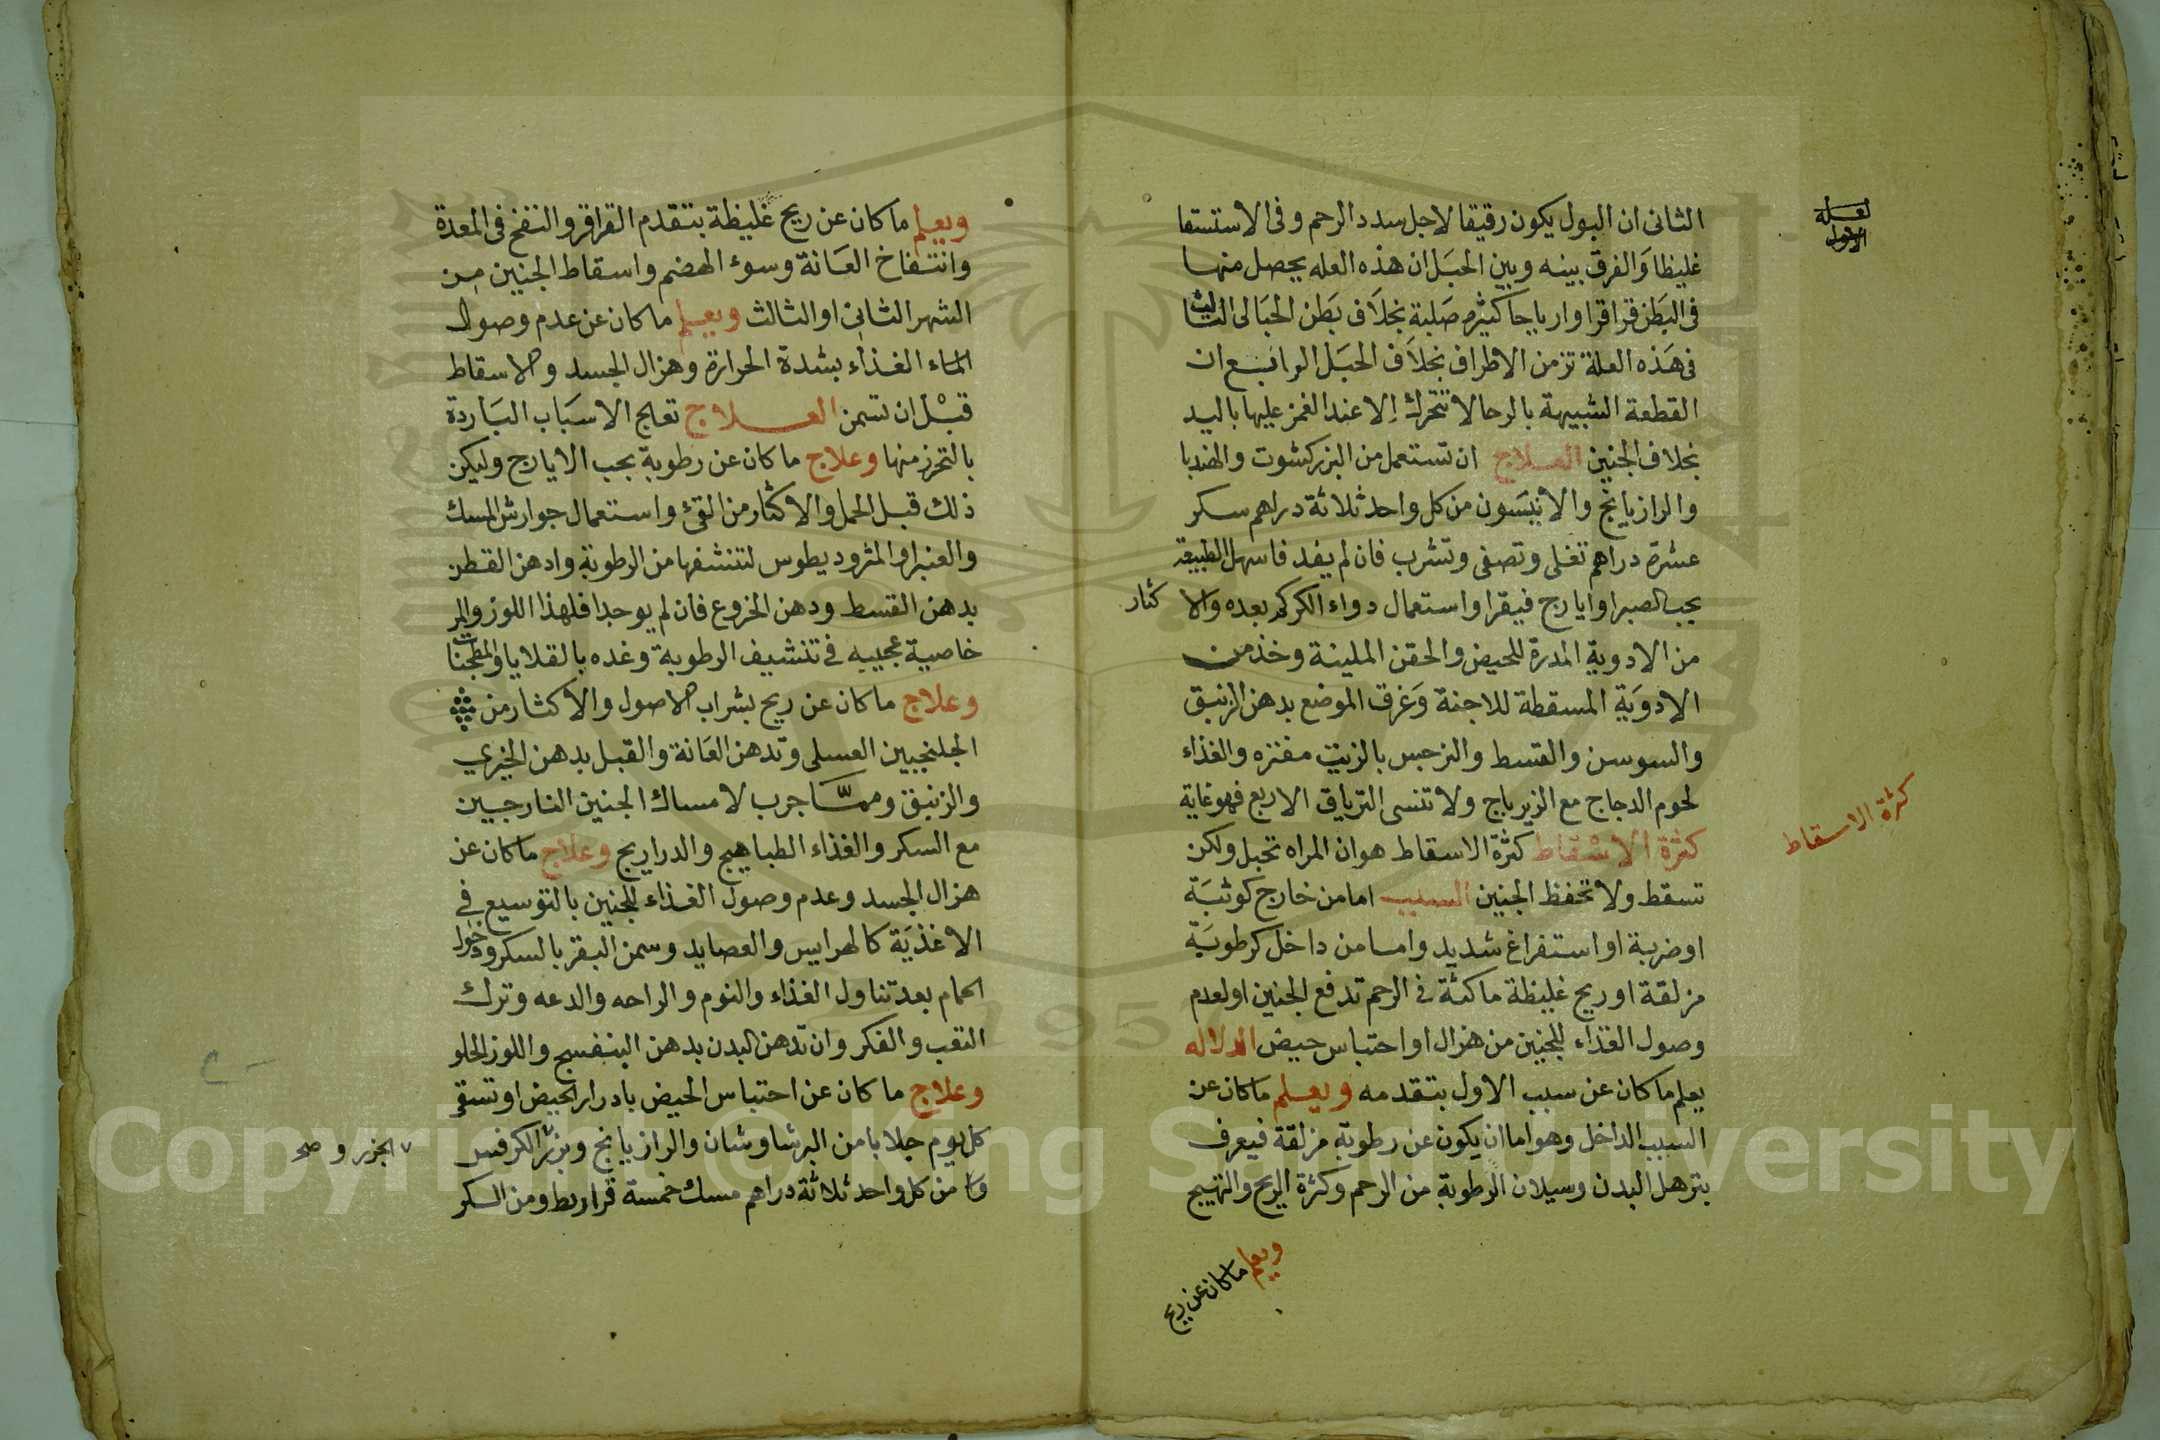 الثانى ان البول يكون رقيقا لاجل سدد الرحم وفى الاستسقا
غليظا والفرق بينه وبين الحبل ان هذه العله يحصل منها
فى البطن قراقرا وارياحا كثيره صلبة بخلاف بطن الحبالى الثالث
فى هذه العلة تزمن الاطراف بخلاف الحبل الرابع ان
القطعة الشبيهة بالرحا لا تتحرك الا عند الغمز عليها باليد
بخلاف الجنين العلاج ان تستعمل من البزركشوت والهندبا
والرازيانج والانيسون من كل واحد ثلاثة دراهم سكر
عشرة دراهم تغلى وتصفى وتشرب فان لم يفد فاسهل الطبيعة
بحب الصبر او ايارج فيقرا واستعمال دواء الكركم بعده والا كثار
من الادوية المدرة للحيض والحقن الملينة وخذ من
الادوية المسقطة للاجنة وغرق الموضع بدهن الزنبق
والسوسن والقسط والنرجس بالزيت مفتره والغذاء
لحوم الدجاج مع الزيرباج ولا تنسى الترياق الاربع فهو غاية
كثرة الاسقاط كثرة الاسقاط هو ان المراه تحبل ولكن
تسقط ولا تحفظ الجنين السبب اما من خارج كوثبة
او ضربة او استفراغ شديد واما من داخل كرطوبة
مزلقة او ريح غليظة ماكثة فى الرحم تدفع الجنين او لعدم
وصول الغذاء للجنين من هزال او احتباس حيض الدلاله
يعلم ما كان عن سبب الاول بتقدمه ويعلم ما كان عن
السبب الداخل وهو اما ان يكون عن رطوبة مزلقة فيعرف
بترهل البدن وسيلان الرطوبة من الرحم وكثرة الريح والتهيج
ويعلم ما كان عن ريح
لعله
كثرة الاسقاط
ويعلم ما كان عن ريح غليظة بتقدم القراقر والنفخ فى المعدة
وانتفاخ العانة وسوء الهضم واسقاط الجنين من
الشهر الثانى او الثالث ويعلم ما كان عن عدم وصول
الماء الغذاء بشدة الحرارة وهزال الجسد والاسقاط
قبل ان تسمن العلاج تعالج الاسباب الباردة
بالتحرز منها وعلاج ما كان عن رطوبة بحب الايارج وليكن
ذلك قبل الحمل والاكثار من القئ واستعمال جوارش المسك
والعنبر او المثروديطوس لتنشفها من الرطوبة وادهن القطن
بدهن القسط ودهن الخروع فان لم يوجدا فلهذا اللوز والمر
خاصية عجيبه فى تنشيف الرطوبة وغده بالقلايا والمطجنات
وعلاج ما كان عن ريح بشراب الاصول والاكثار من
الجلنجبين العسلى وتدهن العانة والقبل بدهن الخيري
والزنبق ومما جرب لامساك الجنين النارجيين
مع السكر والغذاء الطباهيج والدراريج وعلاج ما كان عن
هزال الجسد وعدم وصول الغذاء للجنين بالتوسيع فى
الاغذية كالهرايس والعصايد وسمن البقر بالسكر ودخول
الحمام بعد تناول الغذاء والنوم والراحه والدعه وترك
التعب والفكر وان تدهن البدن بدهن البنفسج واللوز الحلو
وعلاج ما كان عن احتباس الحيض بادرار الحيض او تسقى
كل يوم جلابا من البرشاوشان والرازيانج وبزر الكرفس
من كل واحد ثلاثة دراهم مسك خمسة قراريط ومن السكر
الجزر و صح